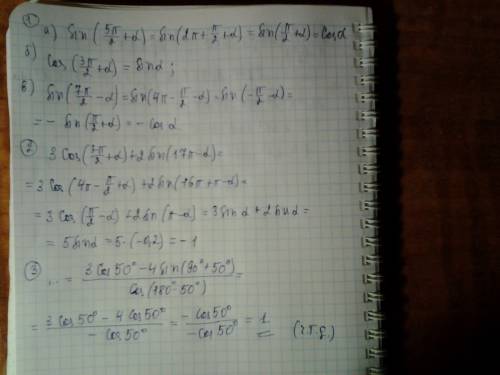 ① а) sin(5π/2+α)=sin(2π+π/2+α)=sin(π/2+α)=cosα
б) cos(3π/2+α)=sinα;
в) sin(7π/2-α)=sin(4π-π/2-α)=sin(-π/2-α)=
=-sin(π/2+α)=-cosα
② 3cos(7π/2+α)+2sin(17π-α)=
=3cos(4π-π/2+α)+2sin(16π+π-α)=
=3cos(π/2-α)+2sin(π-α)=3sinα+2sinα=
=5sinα=5·(-0,2)=-1
③ ...=(3cos50°-4sin(90°+50°))/cos(180°-50°)=
=(3cos50°-4cos50°)/(-cos50°)=(-cos50°)/(-cos50°)=1 (ч.т.д.)